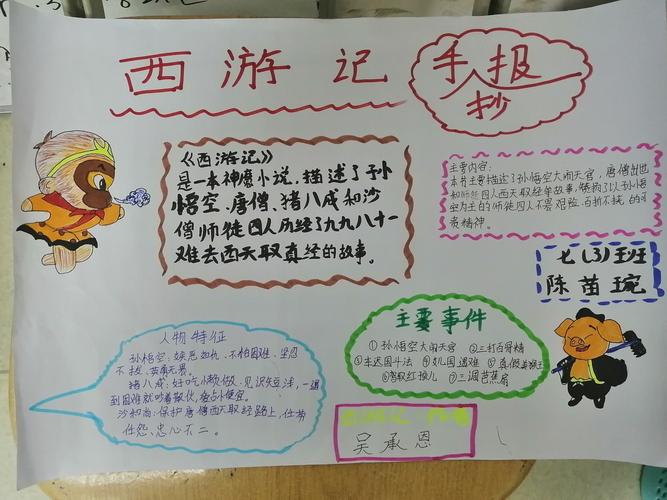 西游记
手抄报
《西游记》
是一本神魔小说。描述了孙
悟空、唐僧、猪八戒和沙
僧师徒四人历经了九九八十一
难去西天取真经的故事。
主要内容:
本书主要描述了孙悟空大闹天宫，唐僧出世
和师徒四人西天取经的故事，
空为主的师徒四人不畏艰险、百折不挠的
贵精神。
七(3)班
陈苗琬
主要事件
①孙悟空大闹天宫 ②三打白骨精
③车迟国斗法 ④女儿国遇难 ⑤真假美猴王
⑥智取红孩儿 ⑦三调芭蕉扇
人物特征
孙悟空：嫉恶如仇，不怕困难，坚忍
不拔，英勇无畏。
猪八戒：好吃懒做，见识短浅，一遇
到困难就吵着散伙，爱占小便宜。
沙和尚：保护唐僧西天取经路上，任劳
任怨、忠心不二。
西游记 作者
吴承恩